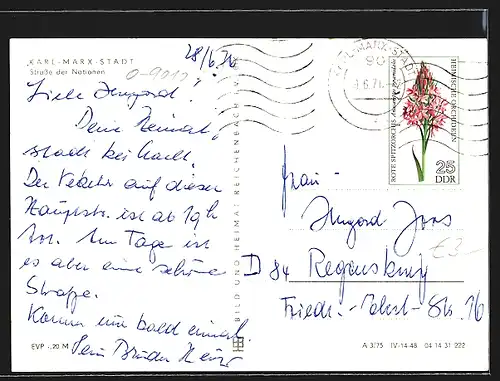 KARL-MARX-STADT
Straße der Nationen
0-9012
28/6.76
Liebe Irmgard!
Deine Heimat-
stadt bei Nacht.
Der Verkehr auf dieser
Hauptstr. ist ab 19h
tot. Am Tage ist
es aber eine schöne
Straße.
Komm nur bald einmal.
Dein Bruder Heinz
EVP -,20 M
BILD UND HEIMAT REICHENBACH (V)
KARL-MARX-STADT
90
ROTE SPITZORCHIS
HEIMISCHE ORCHIDEEN
25
DDR
Frau
Irmgard Joos
D 84 Regensburg
Friedr.-Ebert-Str. 16
€3-
A 3/75 IV-14-48 04 14 31 222